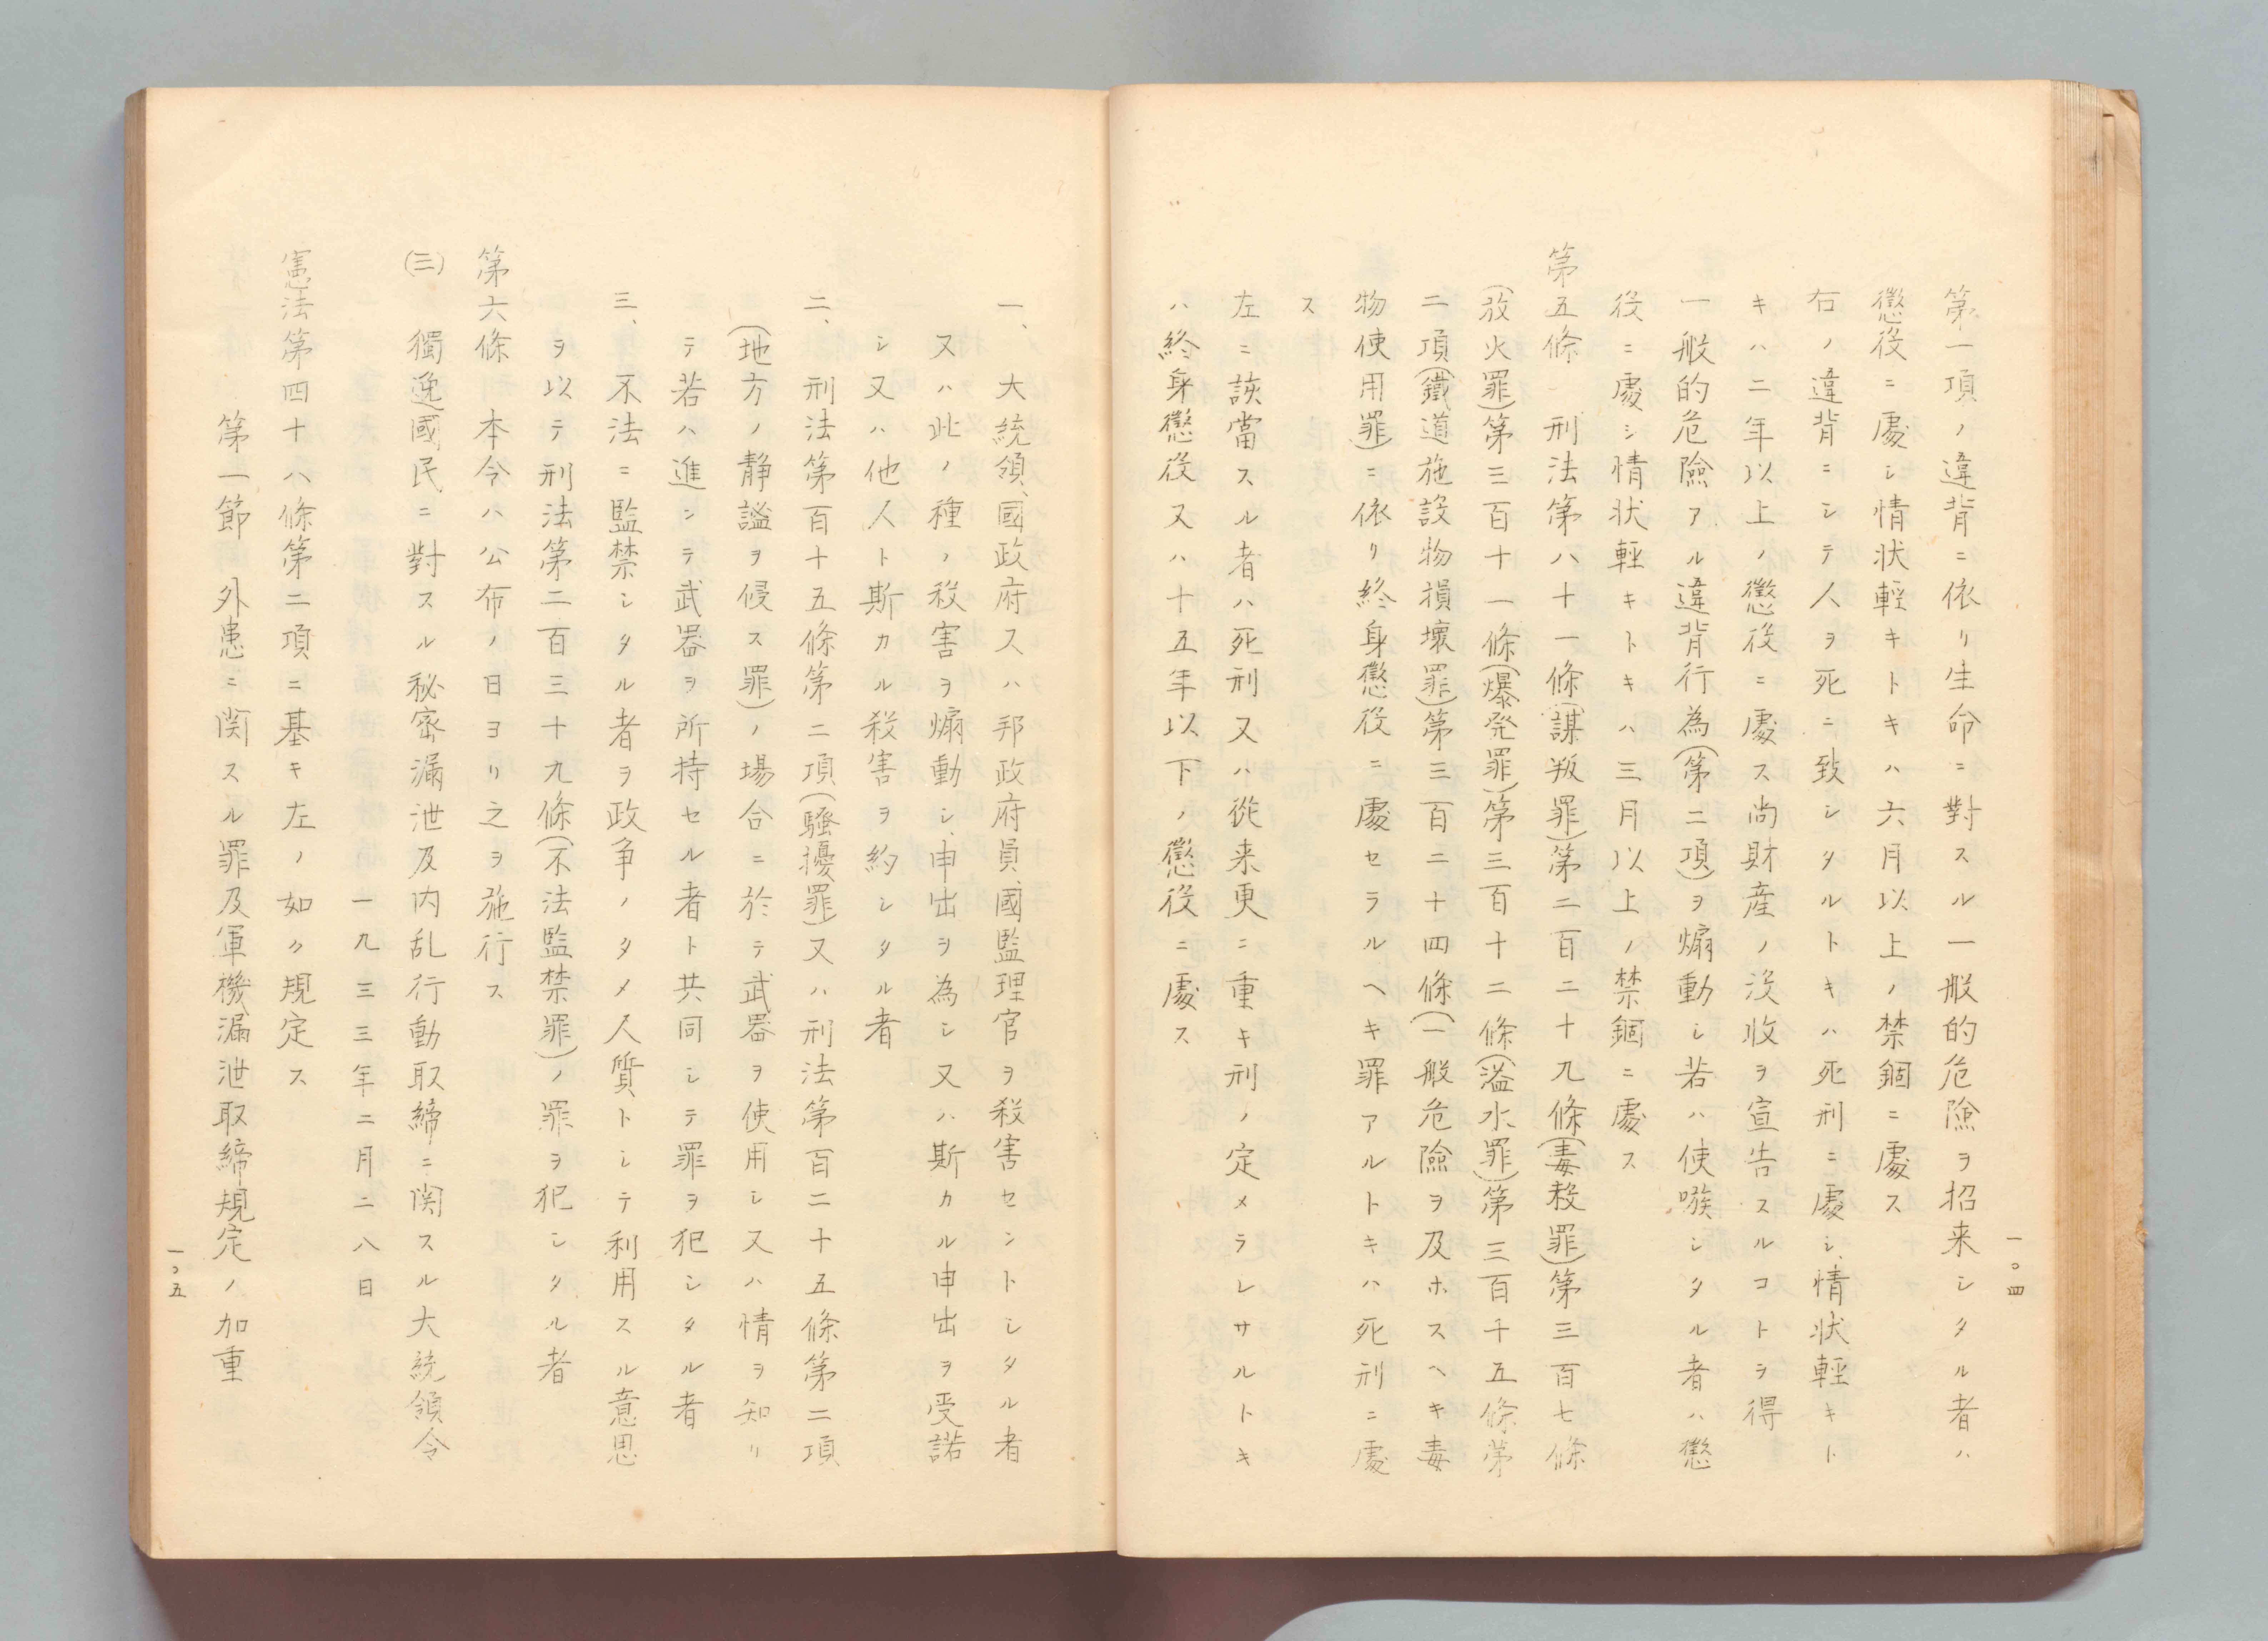 第一項ノ違背ニ依リ生命ニ對スル一般的危險ヲ招来シタル者ハ
懲役ニ處シ情状輕キトキハ六月以上ノ禁錮ニ處ス
右ノ違背ニシテ人ヲ死ニ致シタルトキハ死刑ニ處シ、情状輕キト
キハ二年以上ノ懲役ニ處ス尚財産ノ没收ヲ宣告スルコトヲ得
一般的危險アル違背行為(第二項)ヲ煽動シ若ハ使嗾シタル者ハ懲
役ニ處シ情状輕キトキハ三月以上ノ禁錮ニ處ス
第五條 刑法第八十一條(謀叛罪)第二百二十九條(毒殺罪)第三百七條
(放火罪)第三百十一條(爆発罪)第三百十二條(溢水罪)第三百十五條第
二項(鐵道施設物損壞罪)第三百二十四條(一般危險ヲ及ホスヘキ毒
物使用罪)ニ依リ終身懲役ニ處セラルヘキ罪アルトキハ死刑ニ處
ス
左ニ該當スル者ハ死刑又ハ從来更ニ重キ刑ノ定メラレサルトキ
ハ終身懲役又ハ十五年以下ノ懲役ニ處ス
一〇四
一、大統領、國政府又ハ邦政府員、國監理官ヲ殺害セントシタル者
又ハ此ノ種ノ殺害ヲ煽動シ、申出ヲ為シ又ハ斯カル申出ヲ受諾
シ又ハ他人ト斯カル殺害ヲ約シタル者
二、刑法第百十五條第二項(騷擾罪)又ハ刑法第百二十五條第二項
(地方ノ靜謐ヲ侵ス罪)ノ場合ニ於テ武器ヲ使用シ又ハ情ヲ知リ
テ若ハ進ンテ武器ヲ所持セル者ト共同シテ罪ヲ犯シタル者
三、不法ニ監禁シタル者ヲ政争ノタメ人質トシテ利用スル意思
ヲ以テ刑法第二百三十九條(不法監禁罪)ノ罪ヲ犯シタル者
第六條 本令ハ公布ノ日ヨリ之ヲ施行ス
(三) 獨逸國民ニ對スル秘密漏泄及内乱行動取締ニ関スル大統領令
一九三三年二月二八日
憲法第四十八條第二項ニ基キ左ノ如ク規定ス
第一節 外患ニ関スル罪及軍機漏泄取締規定ノ加重
一〇五